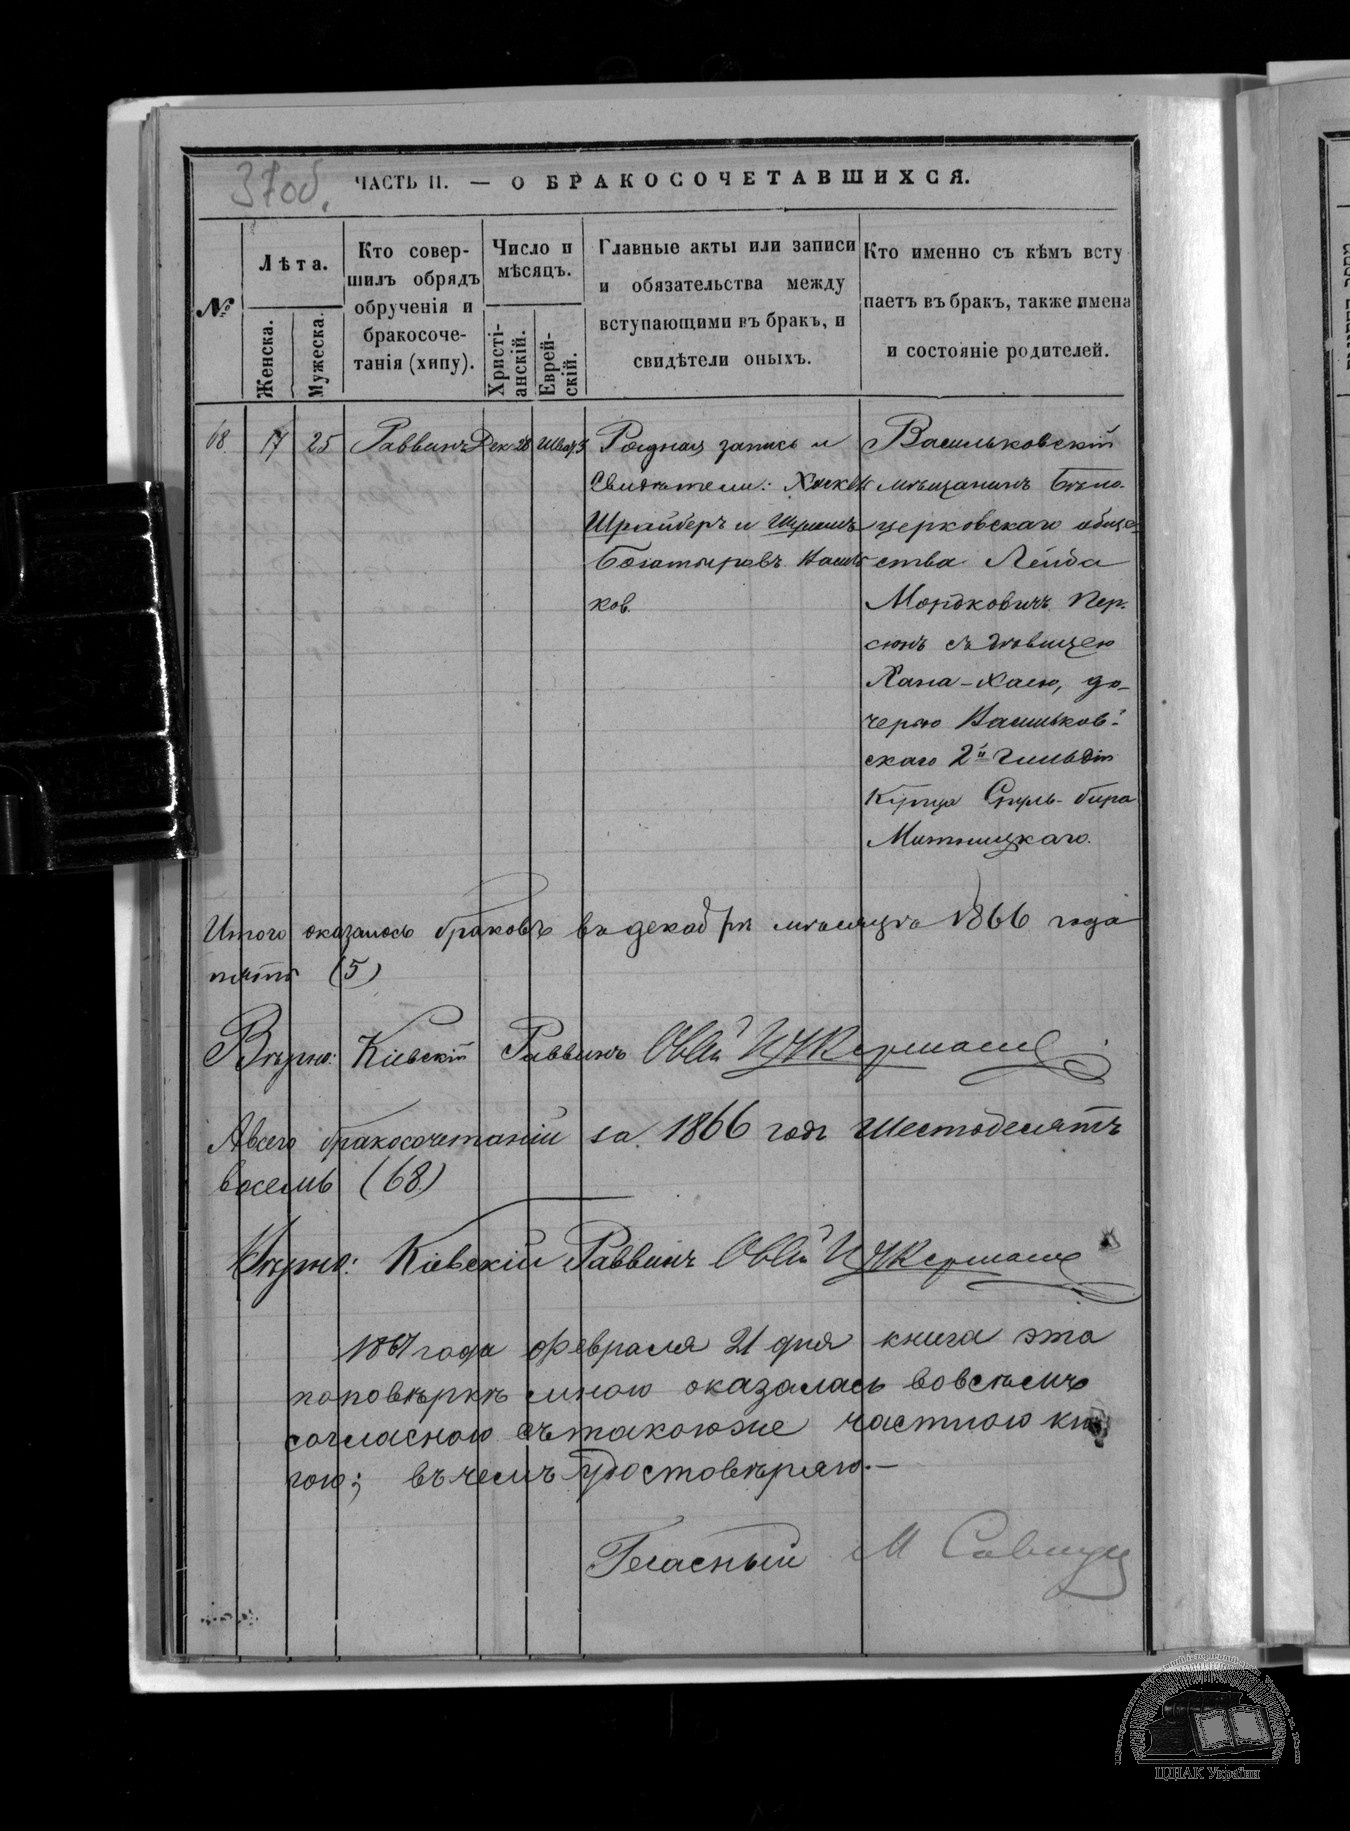 37об.
ЧАСТЬ II. — О БРАКОСОЧЕТАВШИХСЯ.
№
Лѣта.
Женска.
Мужеска.
Кто совер-
шилъ обрядъ
обрученія и
бракосоче-
танія (хипу).
Число и
мѣсяцъ.
Христі-
анскій.
Еврей-
скій.
Главные акты или записи
и обязательства между
вступающими въ бракъ, и
свидѣтели оныхъ.
Кто именно съ кѣмъ всту
паетъ въ бракъ, также имена
и состояніе родителей.
68. 17 25 Раввинъ Дек 28
Рядная запись и
Свидѣтели:
Шрайберъ и
Богатыровъ Василь
ков.
Васильковскій
мѣщанинъ Бѣло-
церковскаго обще-
ства Лейба
Мордковичъ Пер-
сюнъ съ дѣвицею
Хана-Хаею, до-
черью Васильков-
скаго 2й гильдіи
Купца Сруль-бера
Митницкаго.
Итого оказалось браковъ въ декабрѣ мѣсяцѣ 1866 года
пять (5)
Вѣрно: Кіевскій Раввинъ Цукерманъ
А всего бракосочетаній за 1866 годъ Шестьдесятъ
восемь (68)
Вѣрно: Кіевскій Раввинъ Цукерманъ
1867 года февраля 21 дня книга эта
по повѣркѣ мною оказалась во всѣмъ
согласною съ такою же частною кни
гою; въ чемъ удостовѣряю.—
Гласный М Савицк
ЦДІАК України